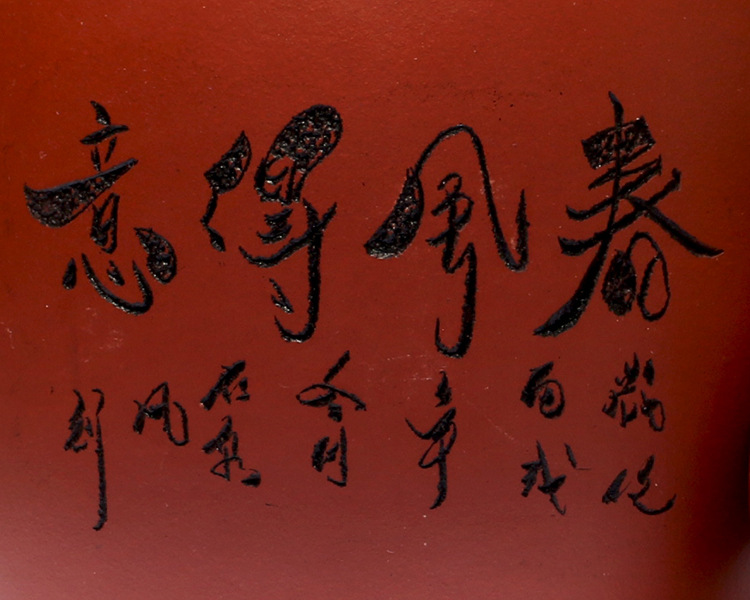 春風得意
丙戌
年
冬月
石泉
风
刻